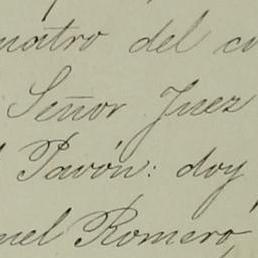 uatro del cu
Señor Juez
Pavón: doy
uel Romero,